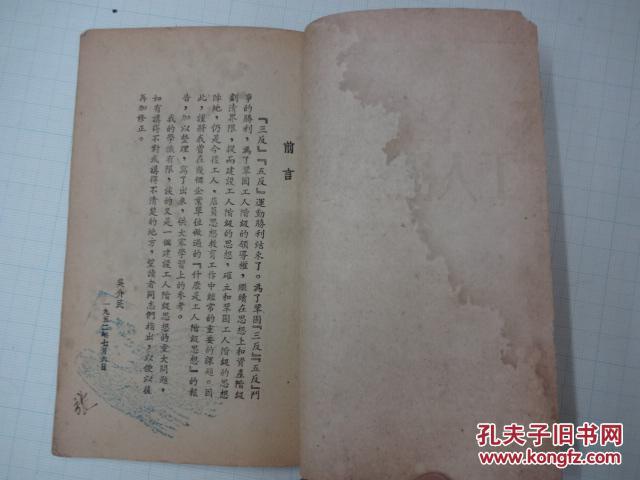 前言
『三反』『五反』運動勝利結束了。爲了鞏固『三反』『五反』鬥
爭的勝利，爲了鞏固工人階級的領導權，繼續在思想上和資產階級
劃清界限，提高建設工人階級的思想，確立和鞏固工人階級的思想
陣地，仍是今後工人、店員思想教育工作中經常的重要的課題。因
此，謹將我曾在幾個企業單位做過的『什麽是工人階級思想』的報
告，加以整理，寫了出來，供大家學習上的參考。
我的學識有限，談的又是一個建設工人階級思想的重大問題，
如有講得不對或講得不清楚的地方，望讀者同志們指出，以便以後
再加修正。
吳升民
一九五二年七月六日
孔夫子旧书网
www.kongfz.com